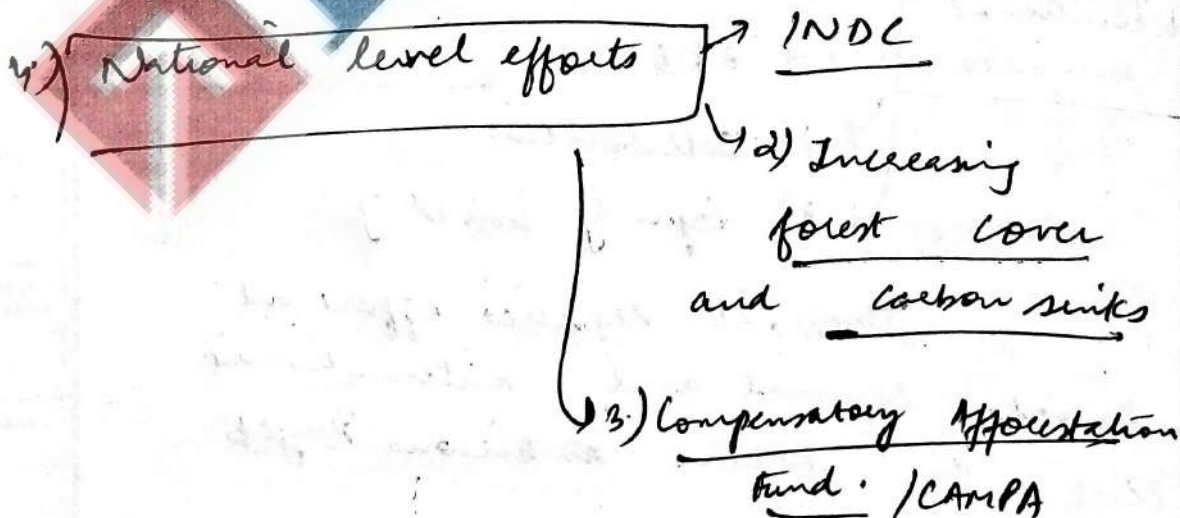 4.) National level efforts → INDC
2) Increasing
forest cover
and carbon sinks
3.) Compensatory Afforestation
Fund. /CAMPA